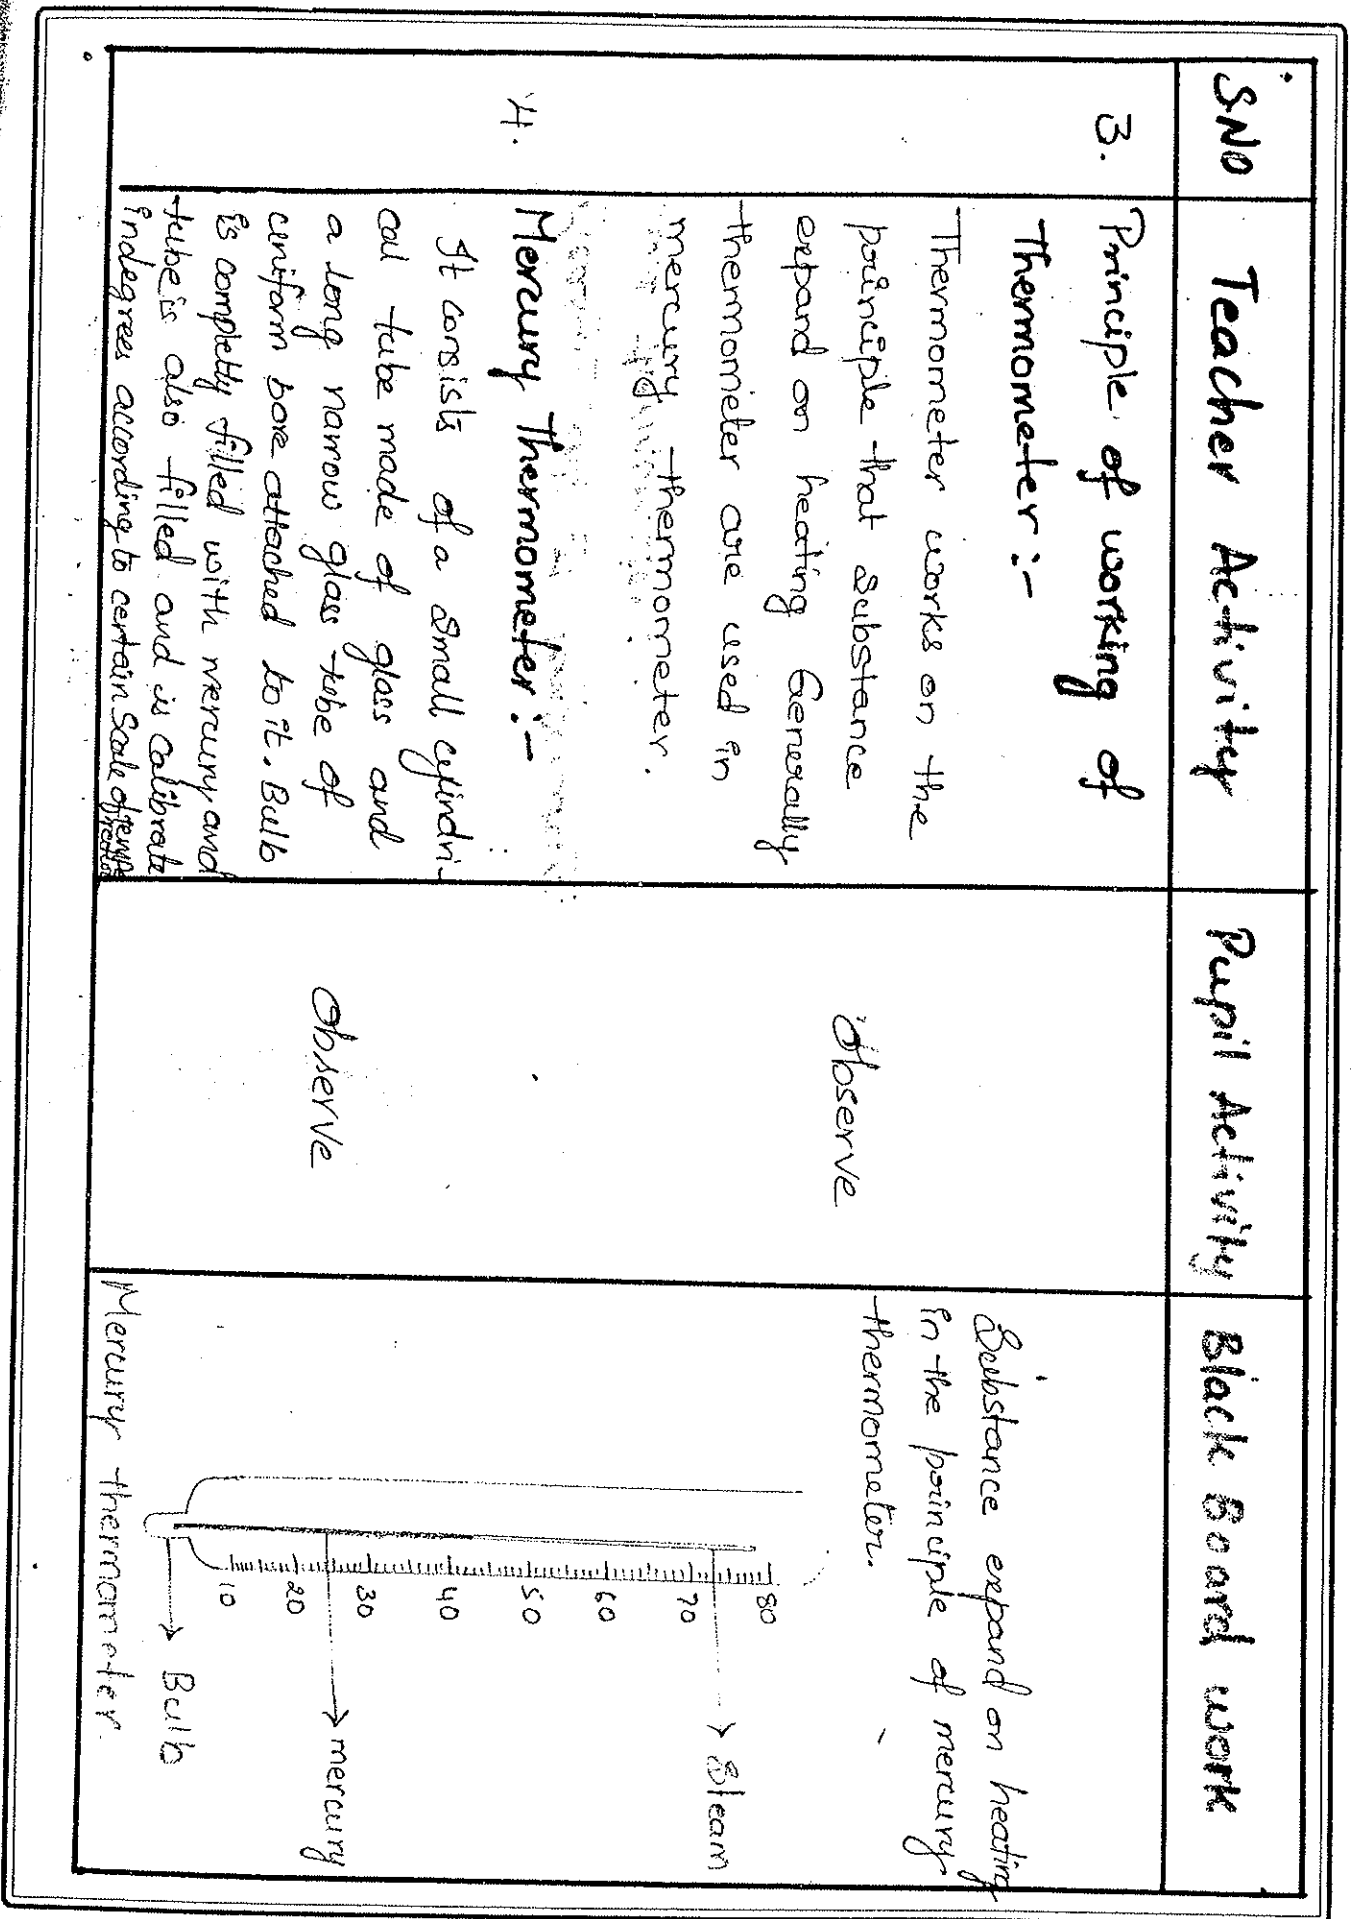 S.No Teacher Activity Pupil Activity Black Board work
3. Principle of working of
Thermometer :-
Thermometer works on the
principle that Substance
expand on heating Generally
themometer are used in
mercury thermometer.
Observe
Substance expand on heating
in the principle of mercury
thermometer.
4. Mercury Thermometer :-
It consists of a Small cylindri-
cal tube made of glass and
a long narrow glass tube of
uniform bore attached to it. Bulb
is completly filled with mercury and
tube is also filled and is calibrate
indegrees according to certain Scale of
Observe
80
70
60
50
40
30
20
10
Steam
mercury
Bulb
Mercury thermometer.